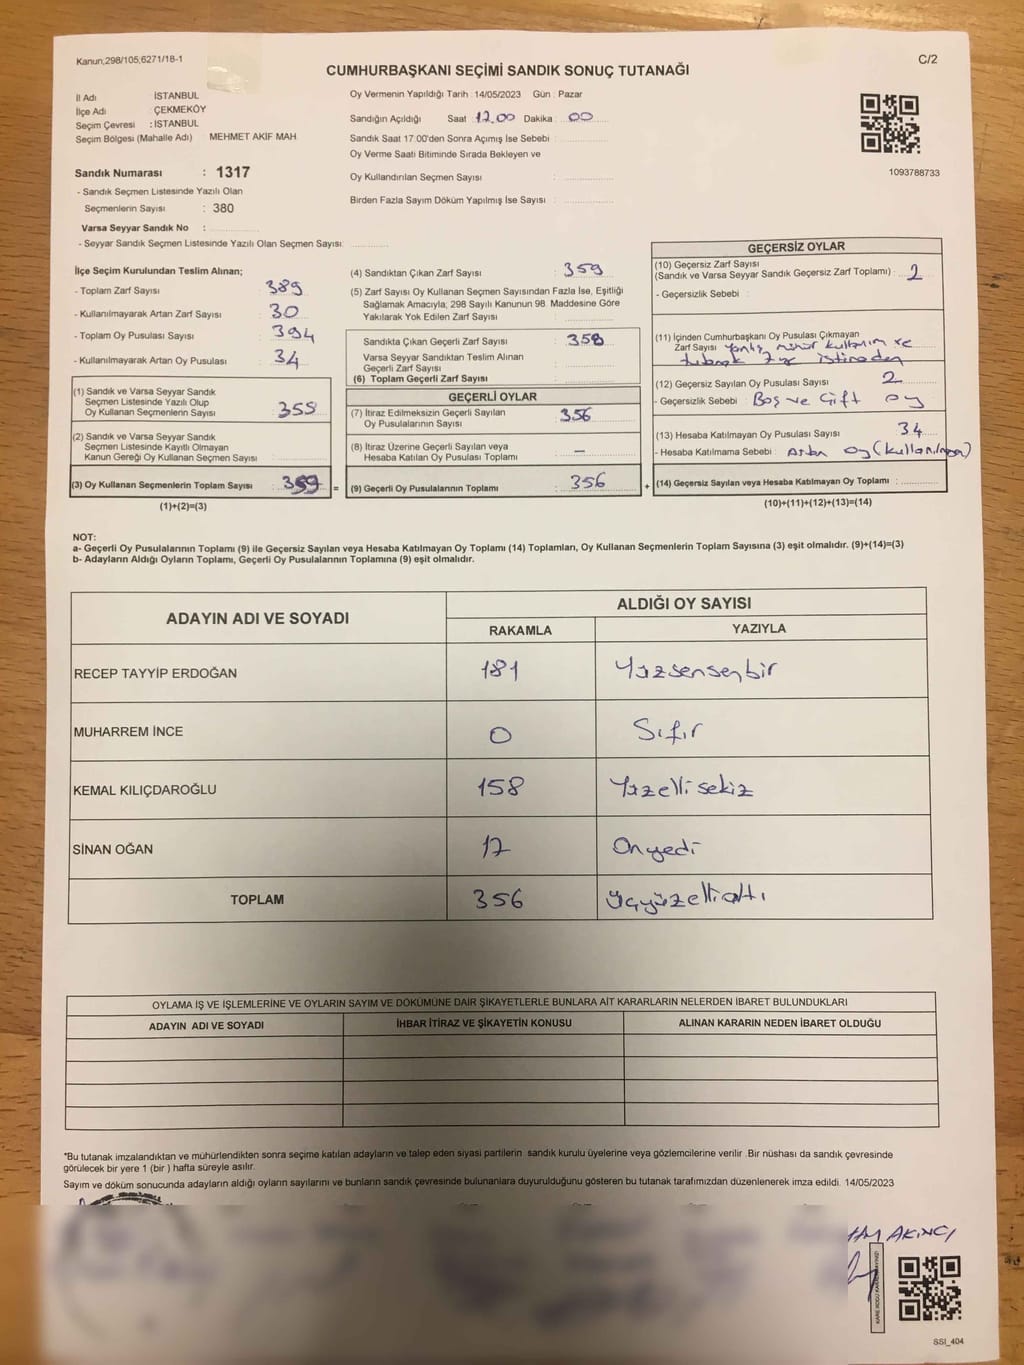 Kanun;298/105;6271/18-1
C/2
CUMHURBAŞKANI SEÇİMİ SANDIK SONUÇ TUTANAĞI
İl Adı İSTANBUL
İlçe Adı : ÇEKMEKÖY
Seçim Çevresi : İSTANBUL
Seçim Bölgesi (Mahalle Adı) MEHMET AKİF MAH
Sandık Numarası : 1317
- Sandık Seçmen Listesinde Yazılı Olan
Seçmenlerin Sayısı : 380
Varsa Seyyar Sandık No :
- Seyyar Sandık Seçmen Listesinde Yazılı Olan Seçmen Sayısı:
Oy Vermenin Yapıldığı Tarih : 14/05/2023 Gün : Pazar
Sandığın Açıldığı Saat 17.00 Dakika : 00
Sandık Saat 17:00'den Sonra Açımış İse Sebebi :
Oy Verme Saati Bitiminde Sırada Bekleyen ve
Oy Kullandırılan Seçmen Sayısı :
Birden Fazla Sayım Döküm Yapılmış İse Sayısı :
1093788733
İlçe Seçim Kurulundan Teslim Alınan;
- Toplam Zarf Sayısı : 389
- Kullanılmayarak Artan Zarf Sayısı : 30
- Toplam Oy Pusulası Sayısı : 394
- Kullanılmayarak Artan Oy Pusulası : 34
(1) Sandık ve Varsa Seyyar Sandık
Seçmen Listesinde Yazılı Olup
Oy Kullanan Seçmenlerin Sayısı : 359
(2) Sandık ve Varsa Seyyar Sandık
Seçmen Listesinde Kayıtlı Olmayan
Kanun Gereği Oy Kullanan Seçmen Sayısı :
(3) Oy Kullanan Seçmenlerin Toplam Sayısı : 359 =
(1)+(2)=(3)
(4) Sandıktan Çıkan Zarf Sayısı : 359
(5) Zarf Sayısı Oy Kullanan Seçmen Sayısından Fazla İse, Eşitliği
Sağlamak Amacıyla; 298 Sayılı Kanunun 98. Maddesine Göre
Yakılarak Yok Edilen Zarf Sayısı :
Sandıkta Çıkan Geçerli Zarf Sayısı : 358
Varsa Seyyar Sandıktan Teslim Alınan
Geçerli Zarf Sayısı :
(6) Toplam Geçerli Zarf Sayısı :
GEÇERLİ OYLAR
(7) İtiraz Edilmeksizin Geçerli Sayılan
Oy Pusulalarının Sayısı : 356
(8) İtiraz Üzerine Geçerli Sayılan veya
Hesaba Katılan Oy Pusulası Toplamı : -
(9) Geçerli Oy Pusulalarının Toplamı : 356 +
GEÇERSİZ OYLAR
(10) Geçersiz Zarf Sayısı
(Sandık ve Varsa Seyyar Sandık Geçersiz Zarf Toplamı) :
- Geçersizlik Sebebi :
(11) İçinden Cumhurbaşkanı Oy Pusulası Çıkmayan
Zarf Sayısı Yanlış mühür kullanım ve
tutanak istinaden
(12) Geçersiz Sayılan Oy Pusulası Sayısı : 2
- Geçersizlik Sebebi : Boş ve Çift oy
(13) Hesaba Katılmayan Oy Pusulası Sayısı : 34
- Hesaba Katılmama Sebebi : Artan oy (kullanılmayan)
(14) Geçersiz Sayılan veya Hesaba Katılmayan Oy Toplamı :
(10)+(11)+(12)+(13)=(14)
NOT:
a- Geçerli Oy Pusulalarının Toplamı (9) ile Geçersiz Sayılan veya Hesaba Katılmayan Oy Toplamı (14) Toplamları, Oy Kullanan Seçmenlerin Toplam Sayısına (3) eşit olmalıdır. (9)+(14)=(3)
b- Adayların Aldığı Oyların Toplamı, Geçerli Oy Pusulalarının Toplamına (9) eşit olmalıdır.
ADAYIN ADI VE SOYADI
ALDIĞI OY SAYISI
RAKAMLA YAZIYLA
RECEP TAYYİP ERDOĞAN 181 Yüzsensenbir
MUHARREM İNCE 0 Sıfır
KEMAL KILIÇDAROĞLU 158 Yüzellisekiz
SİNAN OĞAN 17 Onyedi
TOPLAM 356 Üçyüzellialtı
OYLAMA İŞ VE İŞLEMLERİNE VE OYLARIN SAYIM VE DÖKÜMÜNE DAİR ŞİKAYETLERLE BUNLARA AİT KARARLARIN NELERDEN İBARET BULUNDUKLARI
ADAYIN ADI VE SOYADI İHBAR İTİRAZ VE ŞİKAYETİN KONUSU ALINAN KARARIN NEDEN İBARET OLDUĞU
*Bu tutanak imzalandıktan ve mühürlendikten sonra seçime katılan adayların ve talep eden siyasi partilerin sandık kurulu üyelerine veya gözlemcilerine verilir .Bir nüshası da sandık çevresinde
görülecek bir yere 1 (bir ) hafta süreyle asılır.
Sayım ve döküm sonucunda adayların aldığı oyların sayılarını ve bunların sandık çevresinde bulunanlara duyurulduğunu gösteren bu tutanak tarafımızdan düzenlenerek imza edildi. 14/05/2023
AKINCI
SSI_404